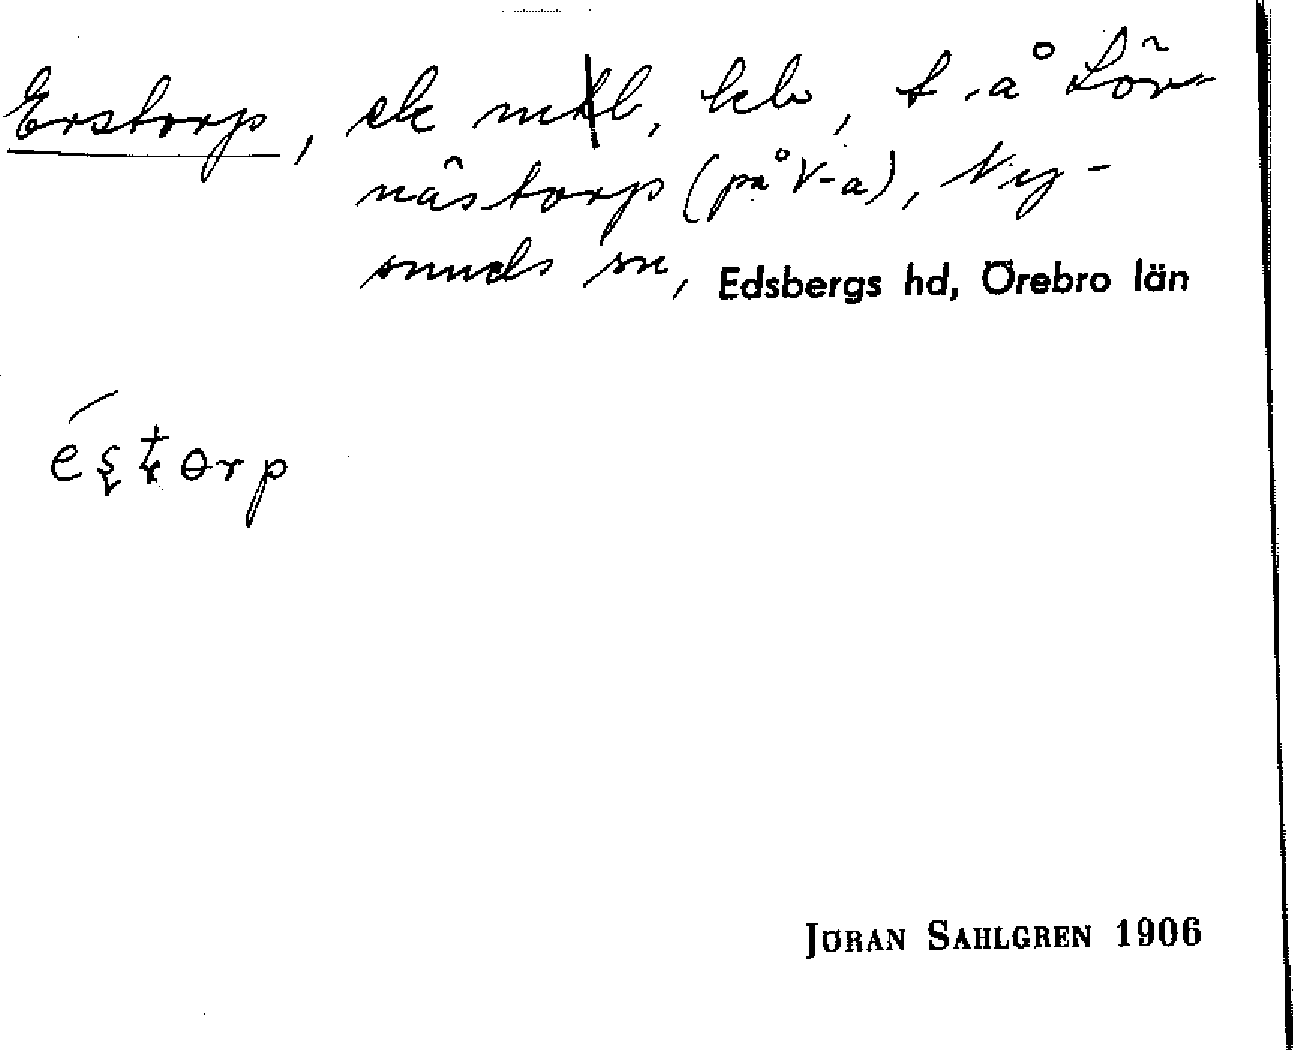 Erstorp, ek mtlb, klv, t.å Löv-
nästorp (på V-a), Ny-
sunds sn, Edsbergs hd, Örebro län
éstorp
JÖRAN SAHLGREN 1906